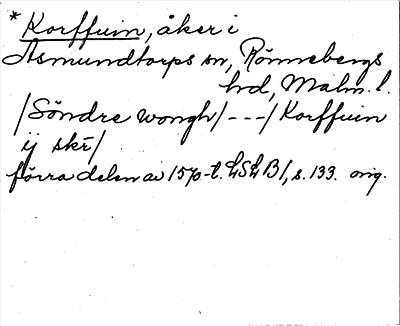 * Korffuin, åker i
Asmundtorps sn, Rönnebergs
hd, Malm. l.
/Söndre wongh/---/Korffuin
ij skr̄/
förra delen av 1570-t. LSLB1, s. 133. orig.